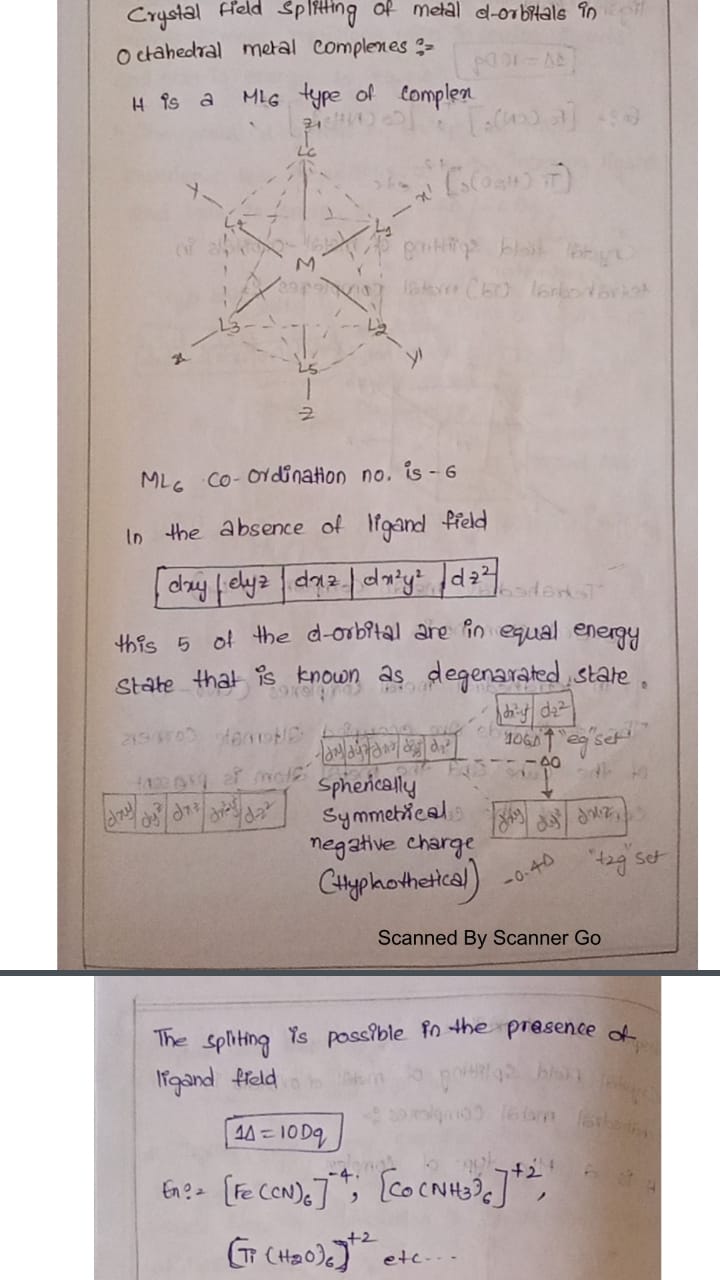 Crystal Field Splitting of metal d-orbitals in
Octahedral metal complexes :-
It is a ML6 type of complex
z1
L6
y x1
L4 L1
M
L3 L2
x y1
L5
z
ML6 co-ordination no. is - 6
In the absence of ligand field
dxy | dyz | dxz | dx²y² | dz²
this 5 of the d-orbital are in equal energy
state that is known as degenarated state.
dx²y² dz²
"eg" set
dxy dyz dxz dx²y² dz² - - - - - ∆0
Spherically
dxy dyz dxz dx²y² dz² Symmetrical dxy dyz dxz
negative charge
(Hyphothetical) -0.4∆ "t2g" set
Scanned By Scanner Go
The spliting is possible in the presence of
ligand field
1∆ = 10Dq
Ex:- [Fe(CN)6]-4, [Co(NH3)6]+2,
[Ti(H2O)6]+2 etc...